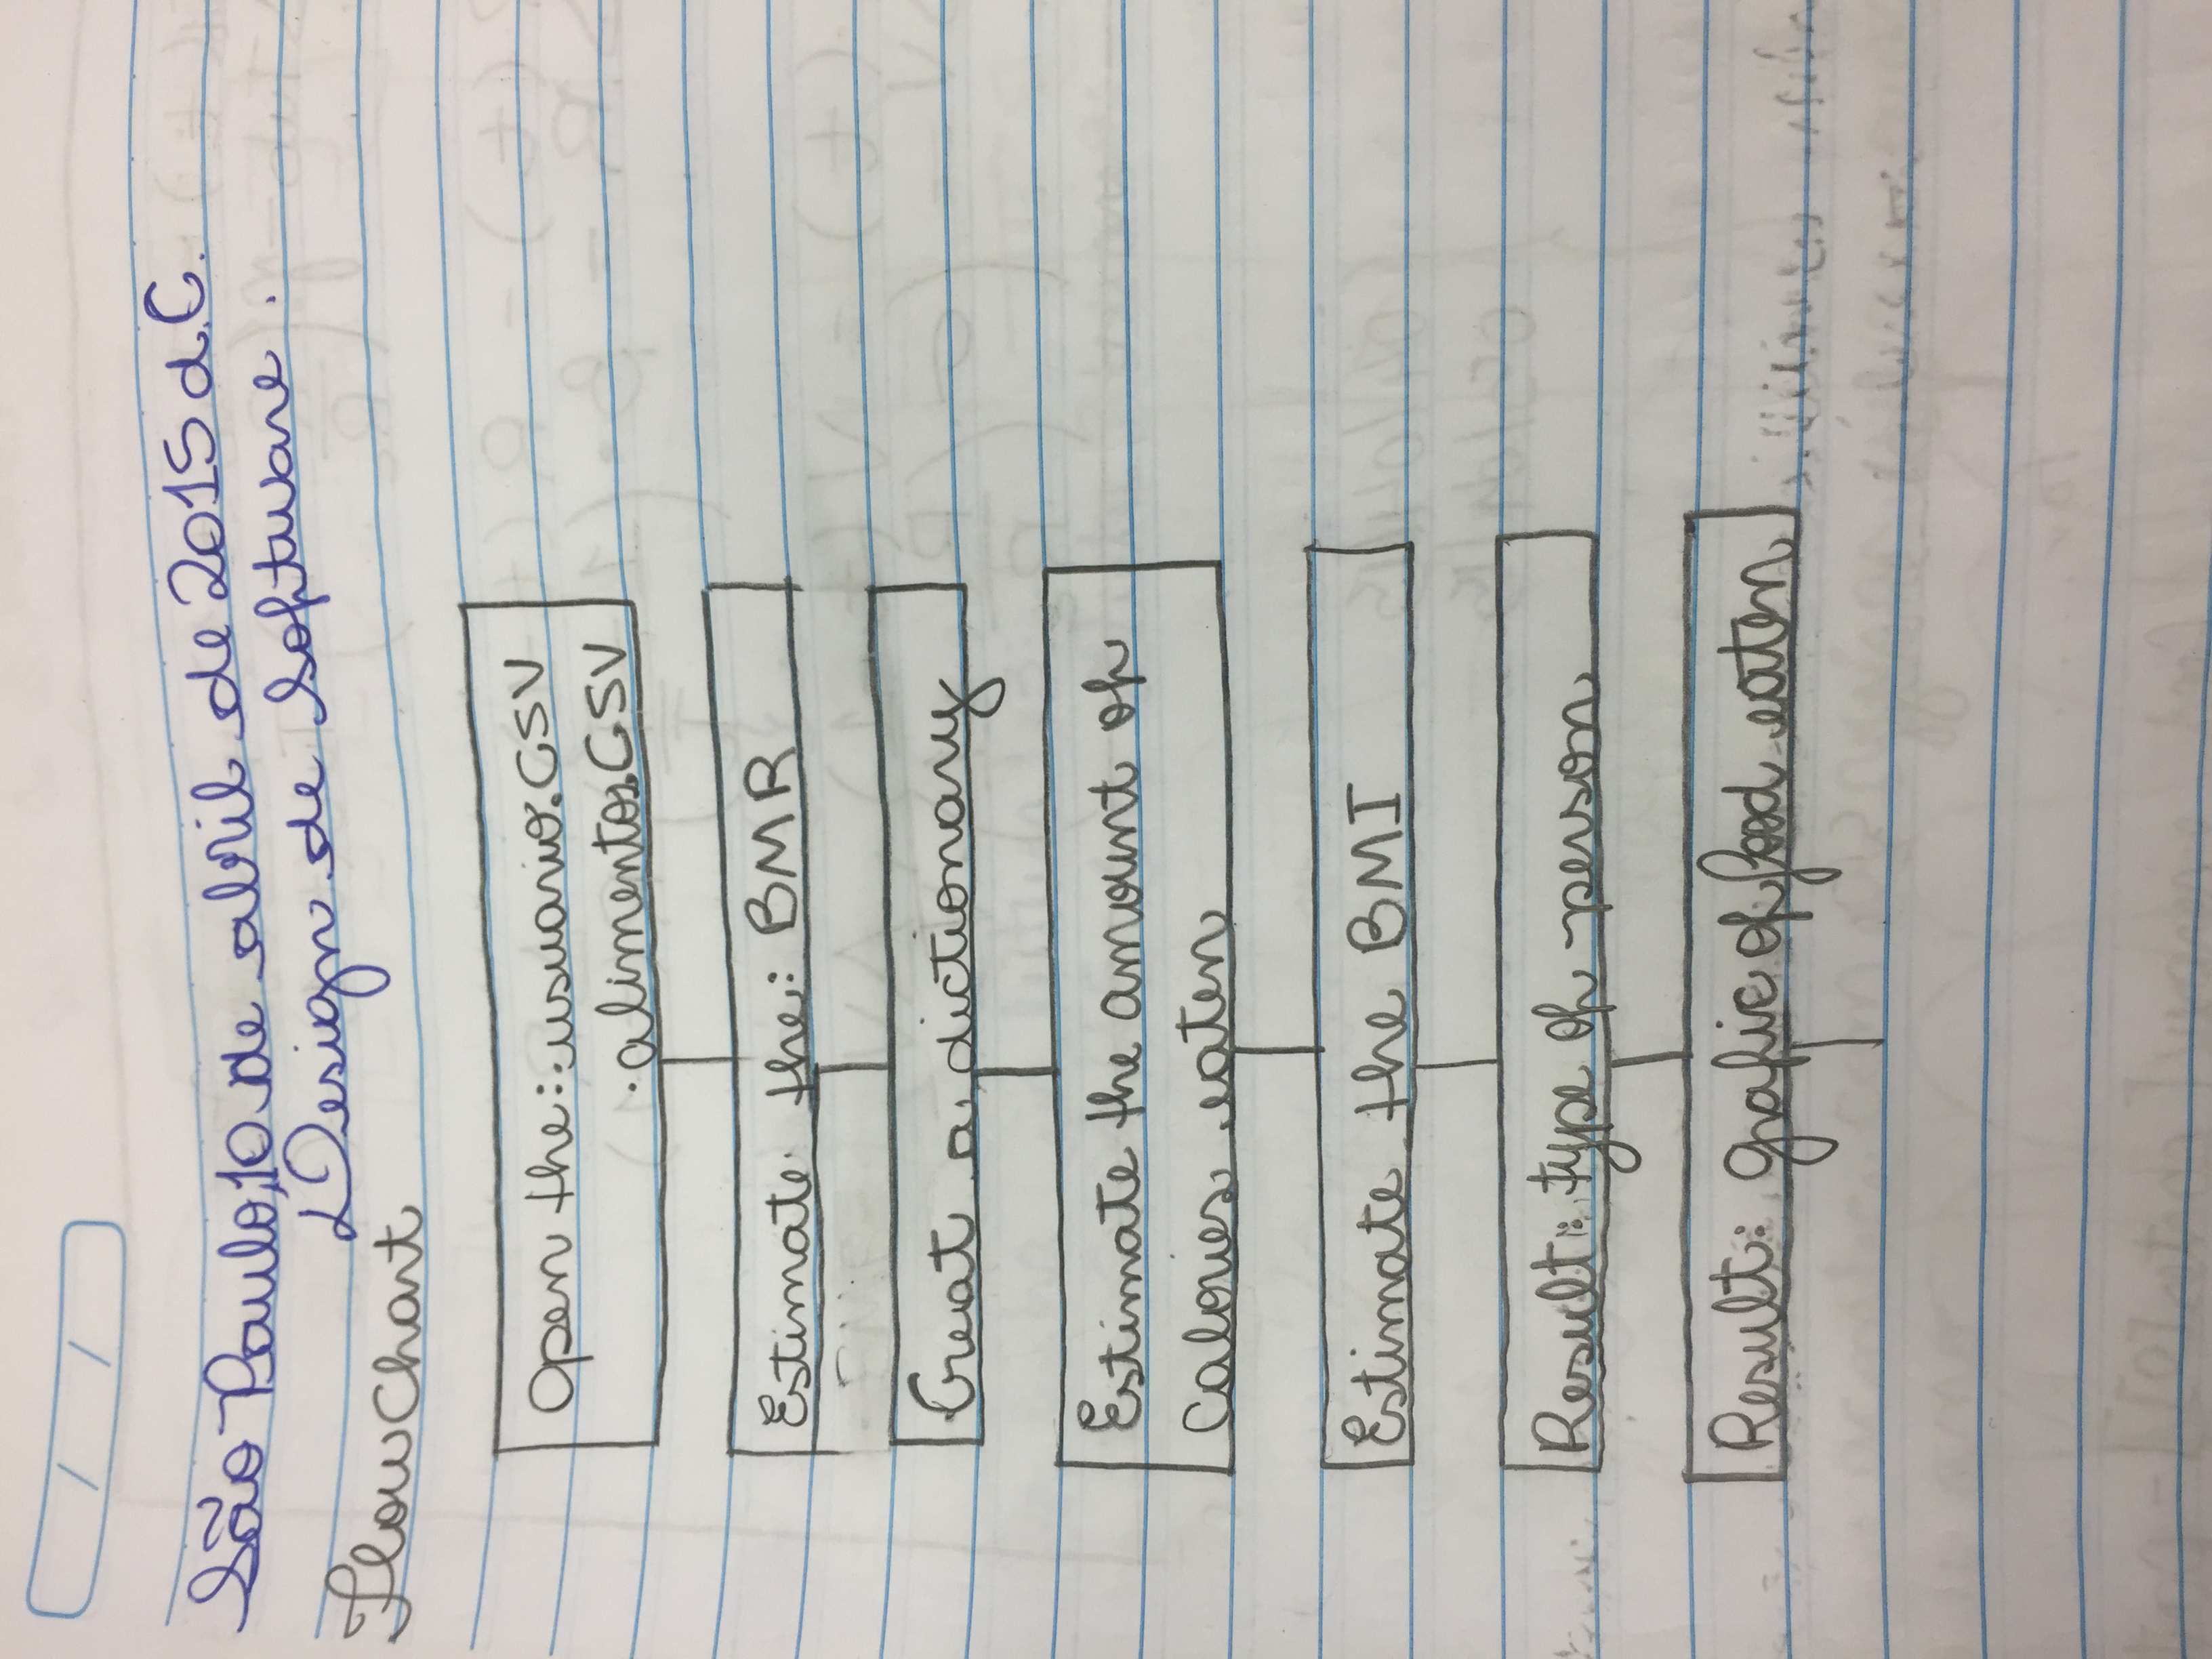 São Paulo, 10 de abril de 2015 d.C.
Design de Software.
FlowChart
Open the: · usuario.CSV
· alimentos.CSV
Estimate the: BMR
Creat a dictionary
Estimate the amount of
Calories eaten
Estimate the BMI
Result: type of person
Result: grafic of food eaten